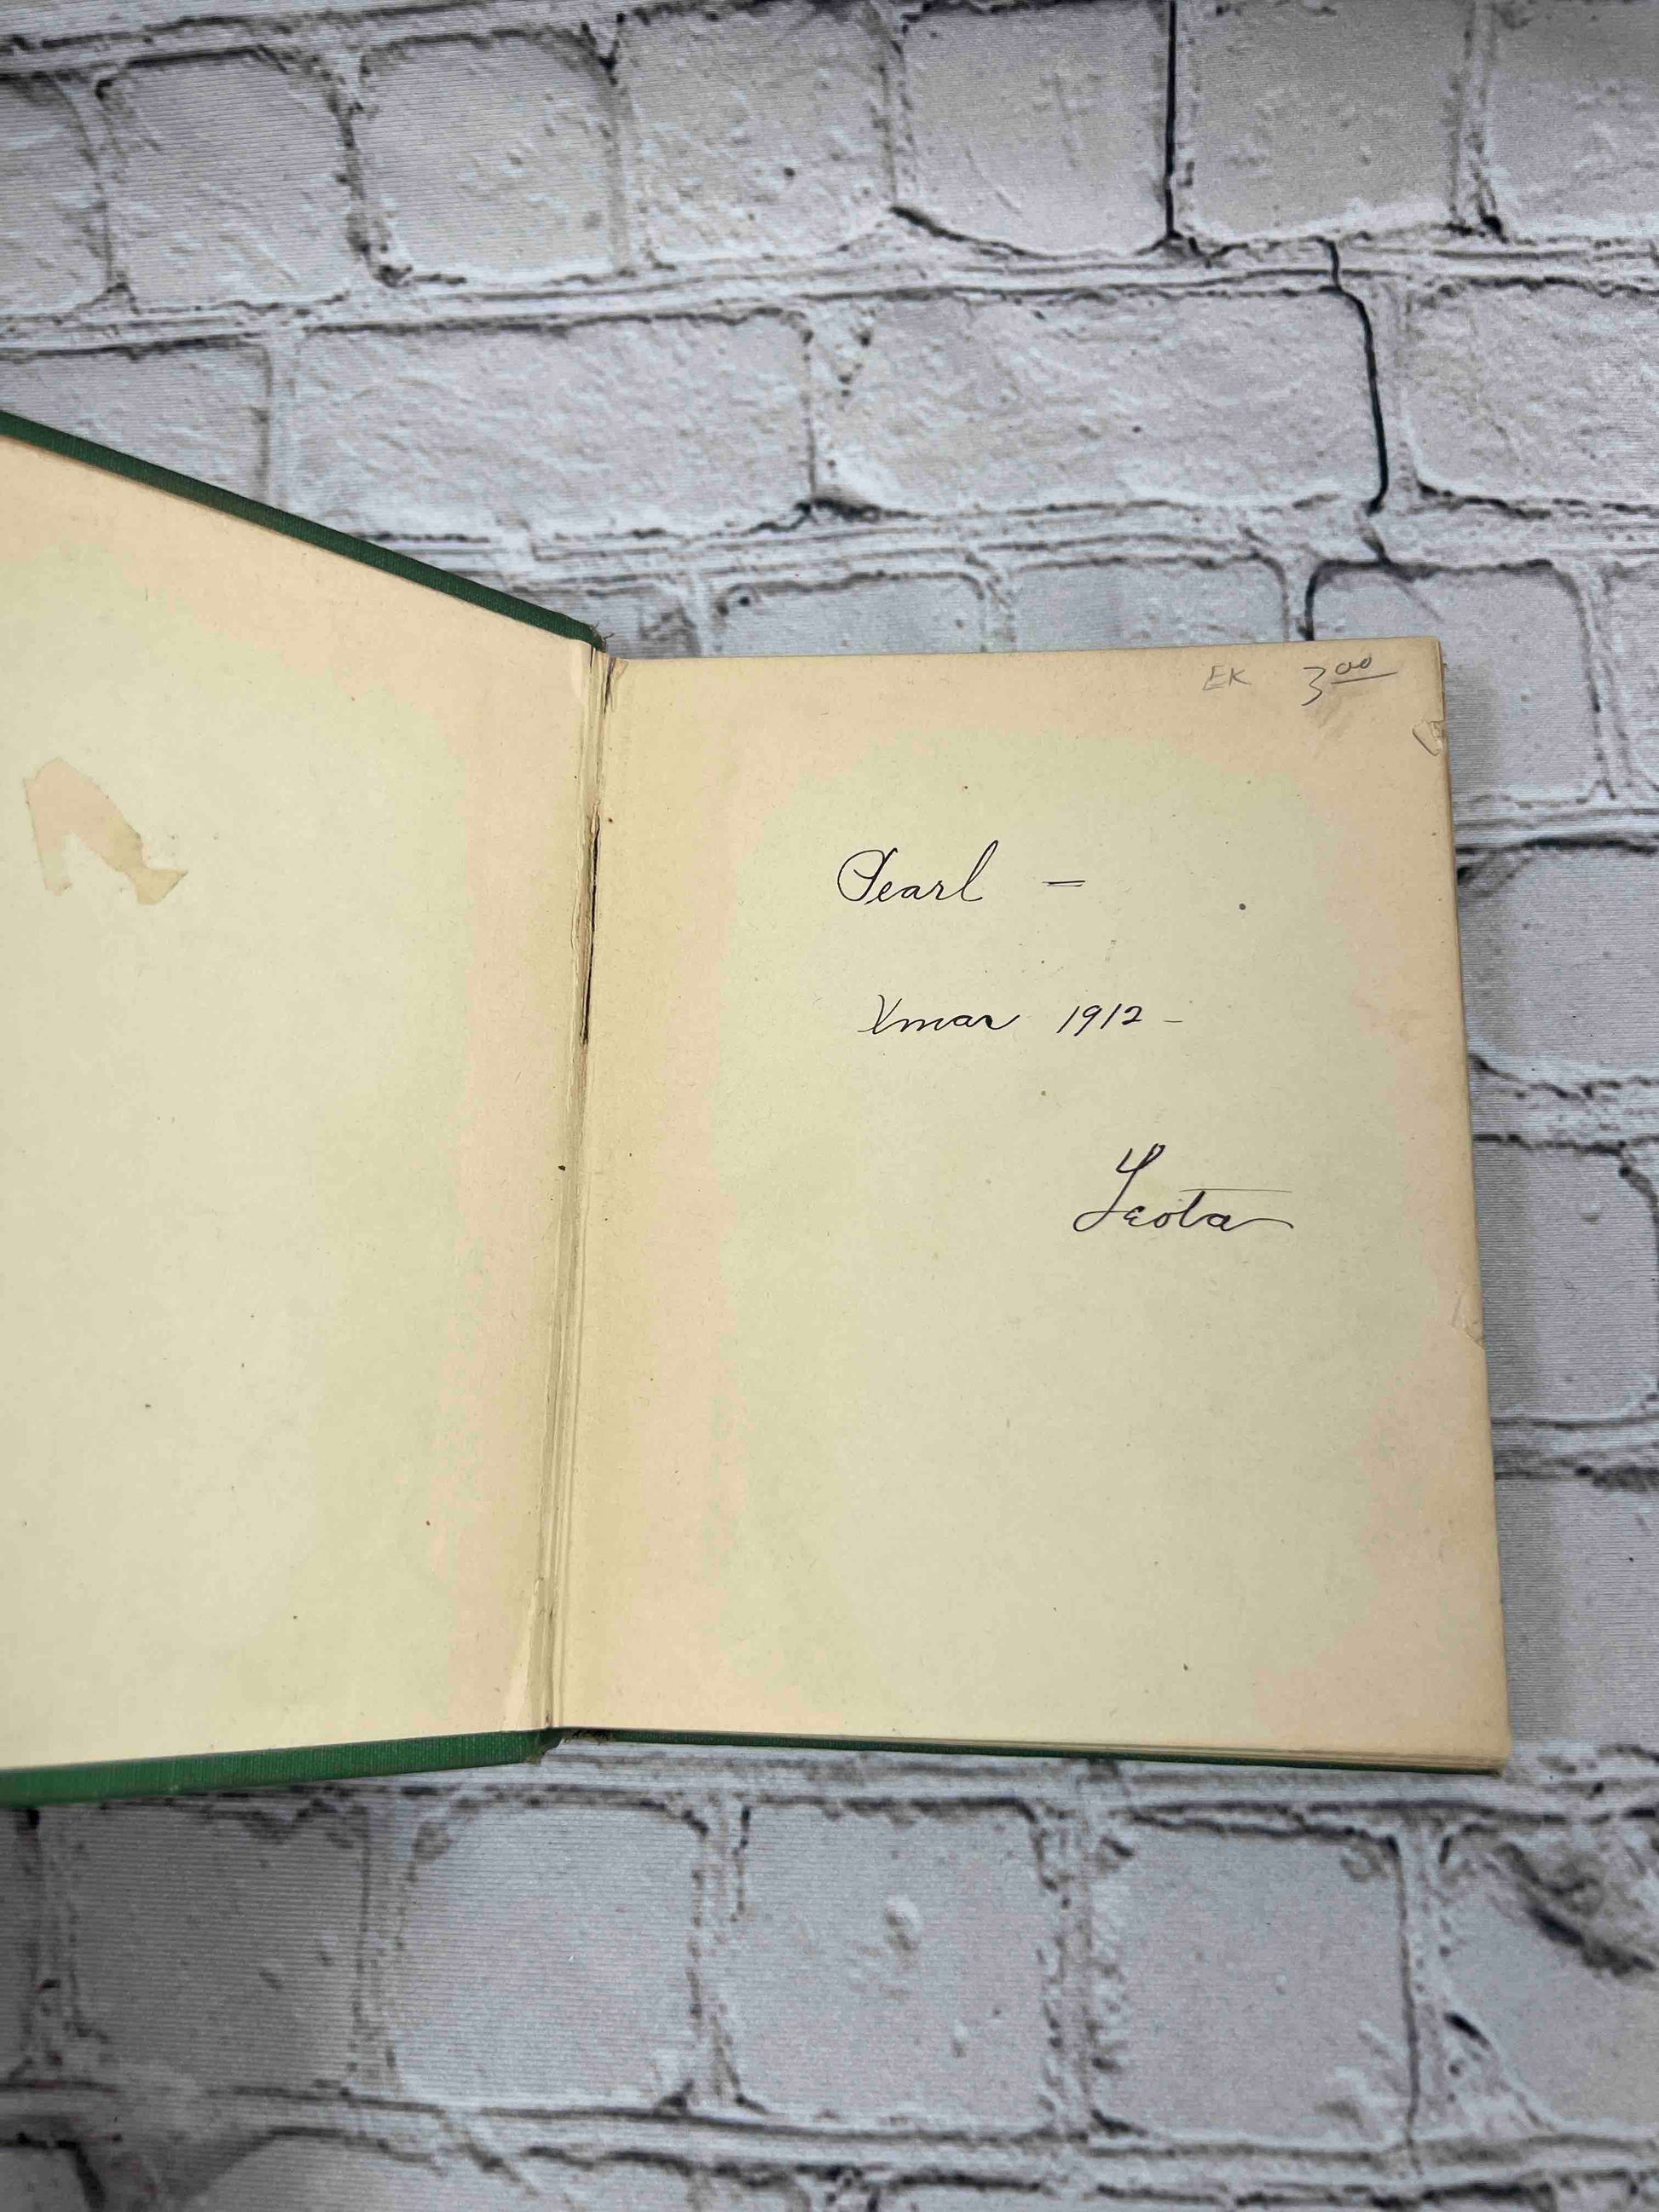 EK 3.00
Pearl —
Xmas 1912 -
Leota